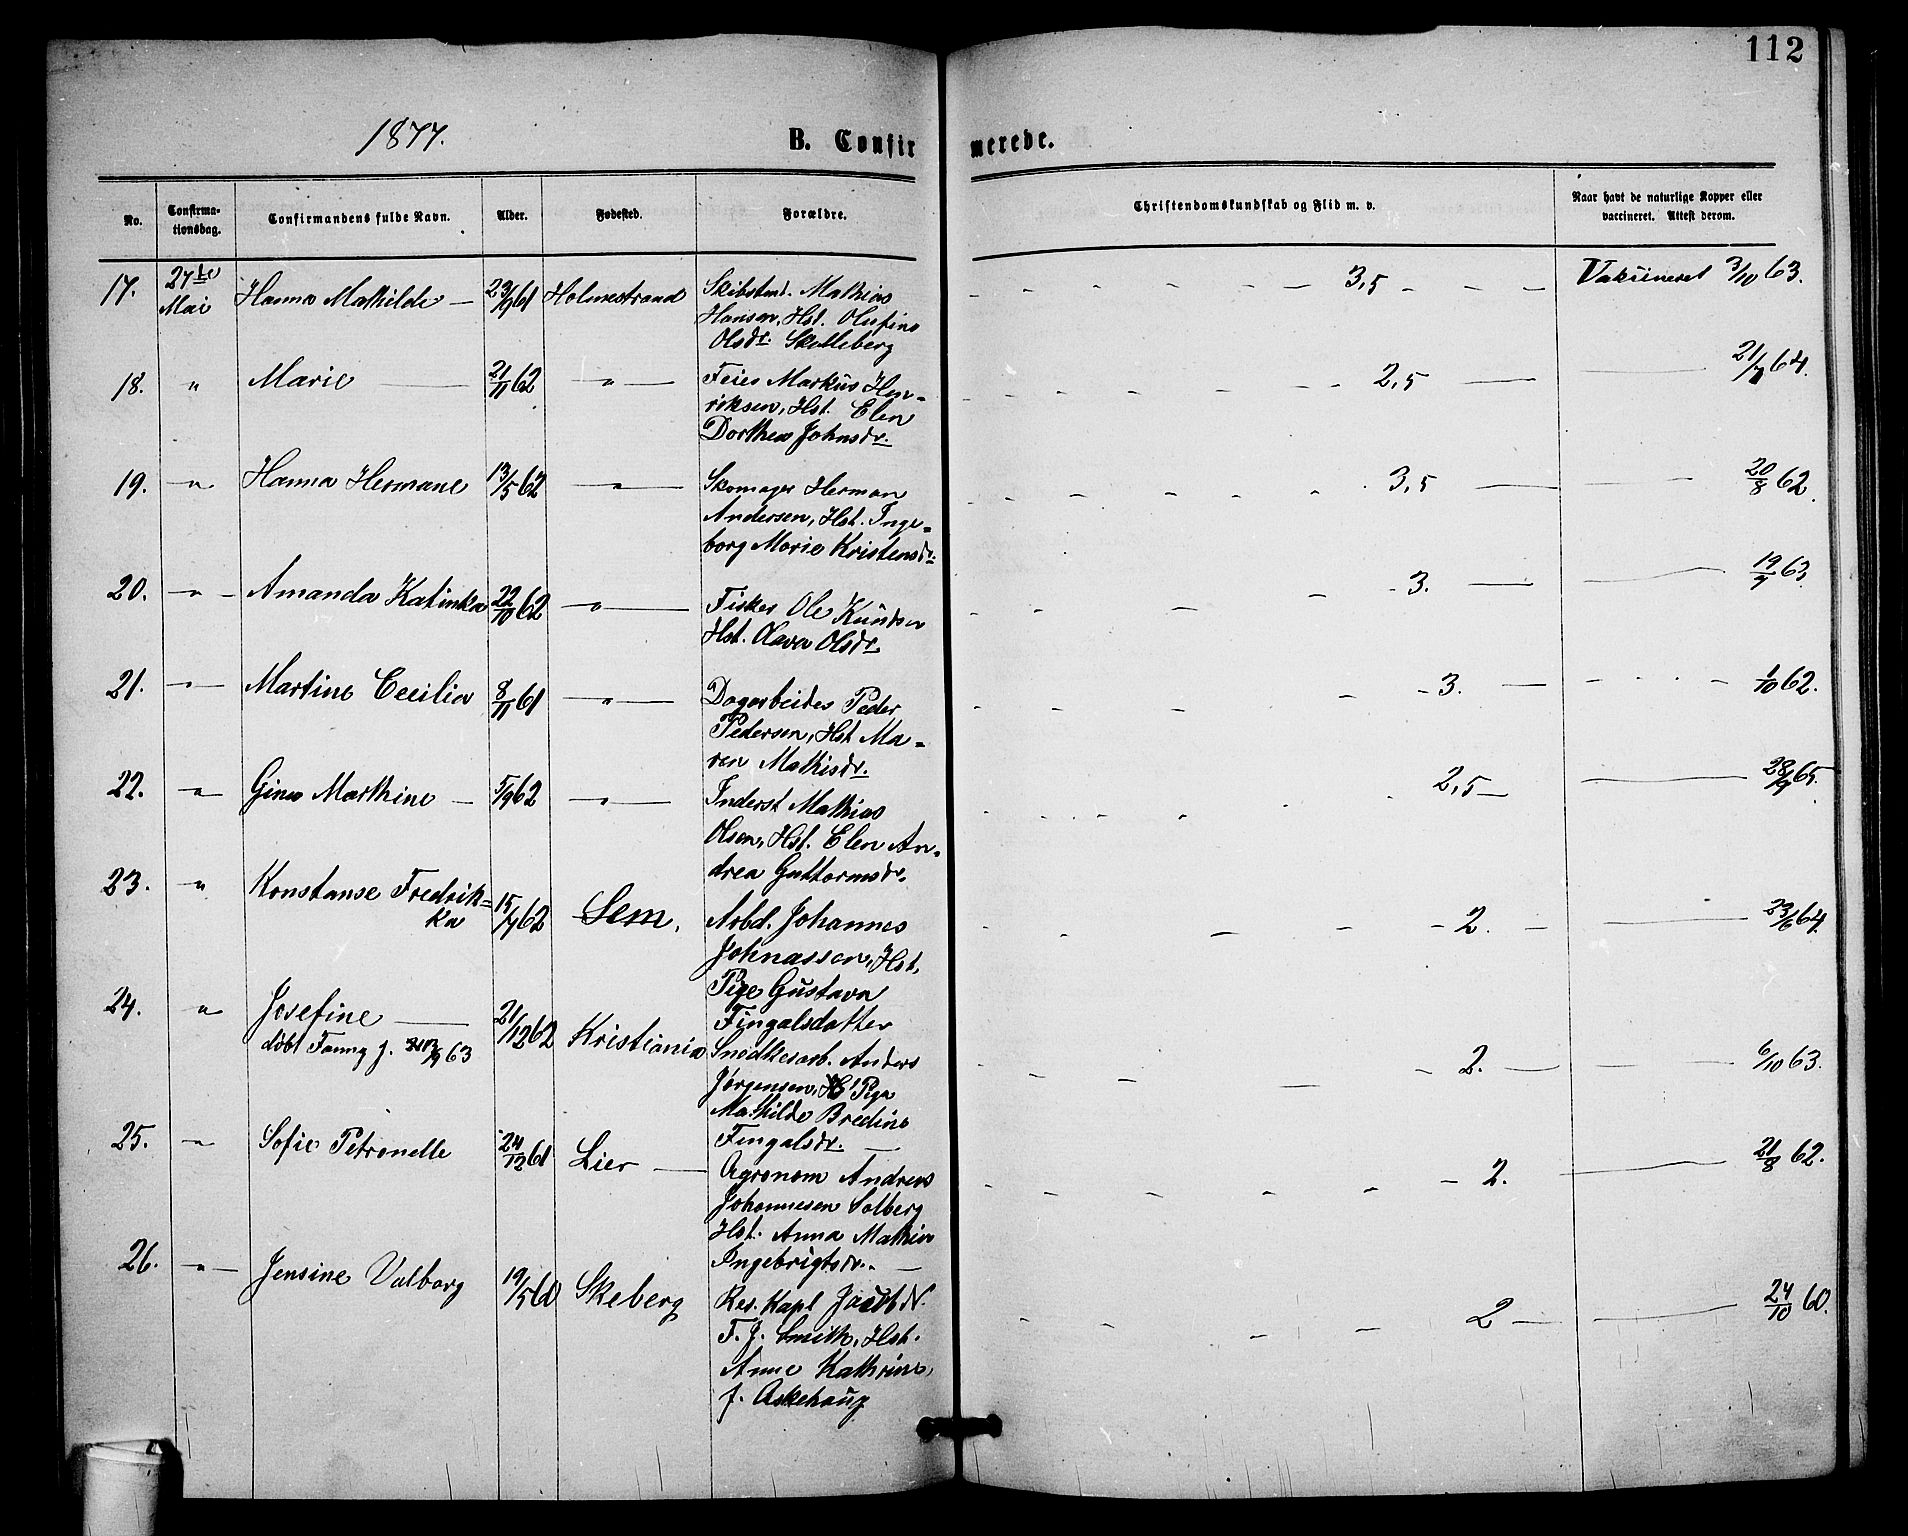 112
1877.
B. Confirmerede.
No.
Confirma-
tionsdag.
Confirmandens fulde Navn.
Alder.
Fødested.
Forældre.
Christendomskundskab og Flid m. v.
Naar havt de naturlige Kopper eller
vaccineret. Attest derom.
17. 27de Mai Hanna Mathilde — 23/9 61 Holmestrand Skibstømd. Mathias - - - 3,5 - - - Vaksineret 3/10 63.
Hansen, Hst. Olufine
Olsdr. Skolleberg
18. " Marie — 21/11 62 —"— Feier Markus Hen- - - - 2,5 — — 21/7 64.
riksen, Hst. Elen
Dorthea Johnsdr.
19. —"— Hanna Hermane 13/5 62 —"— Skomager Herman - - - 3,5 — — 20/8 62.
Andersen, Hst. Inge-
borg Marie Kristensdr.
20. —"— Amanda Katinka 22/10 62 —"— Fisker Ole Knudsen - - - 3. — — 19/9 63.
Hst. Olava Olsdr.
21. —"— Martine Cecilia 8/11 61 —"— Dagarbeider Peder - - - 3. — - - - 1/10 62.
Pedersen, Hst Ma-
ren Mathisdr.
22. —"— Gina Marthine — 5/9 62 —"— Inderst Mathias - - - 2,5 — — 28/9 65.
Olsen, Hst. Elen An-
drea Guttormsdr.
23. " Konstanse Fredrik-
ka 15/7 62 Sem. Arbd. Johannes - - - 2. — — 23/6 64.
Johnassen, Hst.
Pige Gustava
Fingalsdatter
24. —"— Josefine — 21/12 62 Kristiania Snedkerarb. Anders - - - 2. — — 6/10 63.
døbt Fanny J. 63
Jørgensen, Pige
Mathilde Bredine
Fingalsdr. —
25. —"— Sofie Petronelle 24/12 61 Lier — Agronom Andreas - - - 2. — 21/8 62.
Johannesen Solberg
Hst. Anna Mathea
Ingebrigtsdr. —
26. —"— Jensine Valborg 19/5 60 Skeberg Res. Kapl Jacob N. - - - 2 — — 24/10 60.
F. J. Smith, Hst.
Anne Kathrine,
f. Askehaug